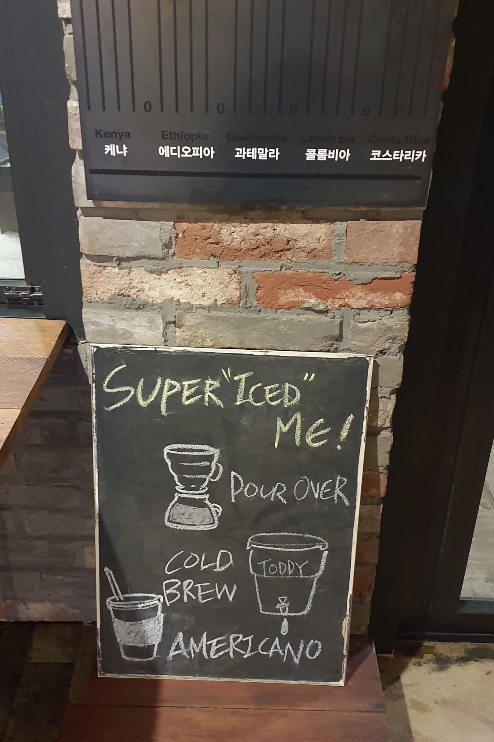 0 0 0 0
Kenya Ethiopia Guatemala Colombia Costa Rica
케냐 에디오피아 과테말라 콜롬비아 코스타리카
SUPER "ICED"
ME!
POUR OVER
COLD
BREW
TODDY
AMERICANO